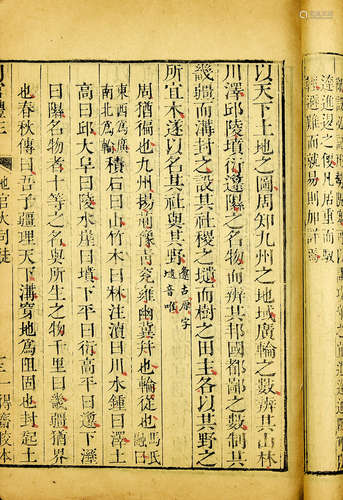 以天下土地之圖周知九州之地域廣輪之數辨其山林
川澤邱陵墳衍邍隰之名物而辨其邦國都鄙之數制其
畿疆而溝封之設其社稷之壝而樹之田主各以其野之
所宜木遂以名其社與其野邍古原字
壝音唯
周猶徧也九州楊荊豫靑兗雍幽冀幷也輪從也馬氏融曰
東西爲廣
南北爲輪積石曰山竹木曰林注瀆曰川水鍾曰澤土
高曰邱大阜曰陵水崖曰墳下平曰衍高平曰邍下溼
曰隰名物者十等之名與所生之物千里曰畿疆猶界
也春秋傳曰吾子疆理天下溝穿地爲阻固也封起土
地官大司徒